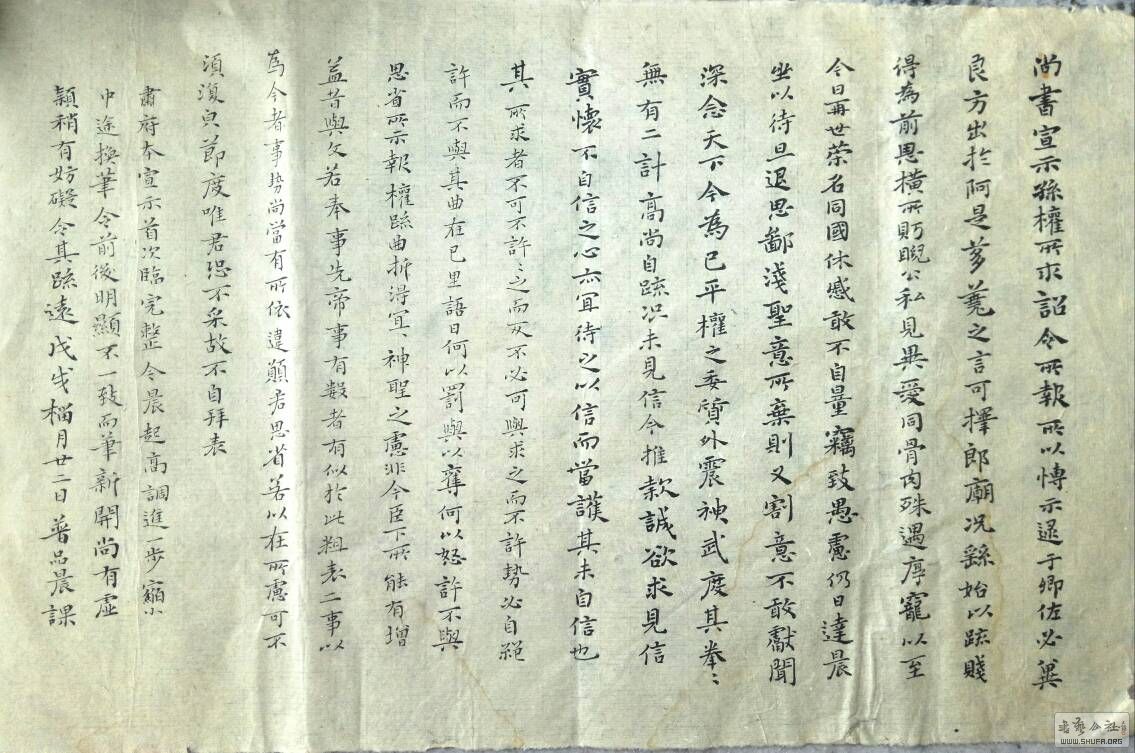 尚書宣示孫權所求詔令所報所以博示逮于卿佐必冀
良方出於阿是芻蕘之言可擇郎廟況繇始以疏賤
得為前恩橫所眄睨公私見異愛同骨肉殊遇厚寵以至
今日再世榮名同國休慼敢不自量竊致愚慮仍日達晨
坐以待旦退思鄙淺聖意所棄則又割意不敢獻聞
深念天下今為已平權之委質外震神武度其拳〻
無有二計高尚自疏況未見信今推款誠欲求見信
實懷不自信之心亦宜待之以信而當護其未自信也
其所求者不可不許〻之而反不必可與求之而不許勢必自絕
許而不與其曲在己里語曰何以罰與以奪何以怒許不與
思省所示報權疏曲折得宜〻神聖之慮非今臣下所能有增
益昔與文若奉事先帝事有數者有似於此粗表二事以
為今者事勢尚當有所依違願君思省若以在所慮可不
須復貟節度唯君恐不采故不自拜表
肅府本宣示首次臨完整今晨起高調進一步縮小
中途換筆令前後明顯不一致而筆新開尚有虛
穎稍有妨礙令其疏遠戊戌榴月廿二日普品晨課
書藝公社
WWW.SHUFA.ORG